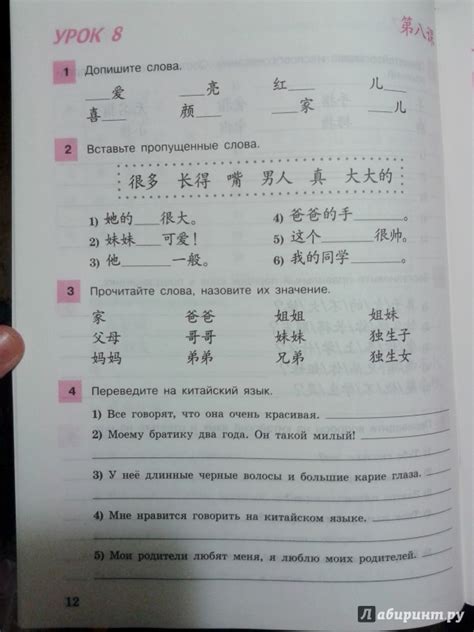 УРОК 8 第八课
1 Допишите слова.
___爱 ___亮 红___ 儿___
喜___ 颜___ ___家 ___儿
2 Вставьте пропущенные слова.
很多 长得 嘴 男人 真 大大的
1) 她的___很大。 4) 爸爸的手___。
2) 妹妹___可爱! 5) 这个___很帅。
3) 他___一般。 6) 我的同学___。
3 Прочитайте слова, назовите их значение.
家 爸爸 姐姐 姐妹
父母 哥哥 妹妹 独生子
妈妈 弟弟 兄弟 独生女
4 Переведите на китайский язык.
1) Все говорят, что она очень красивая.
2) Моему братику два года. Он такой милый!
3) У неё длинные черные волосы и большие карие глаза.
4) Мне нравится говорить на китайском языке.
5) Мои родители любят меня, я люблю моих родителей.
12
Лабиринт.ру